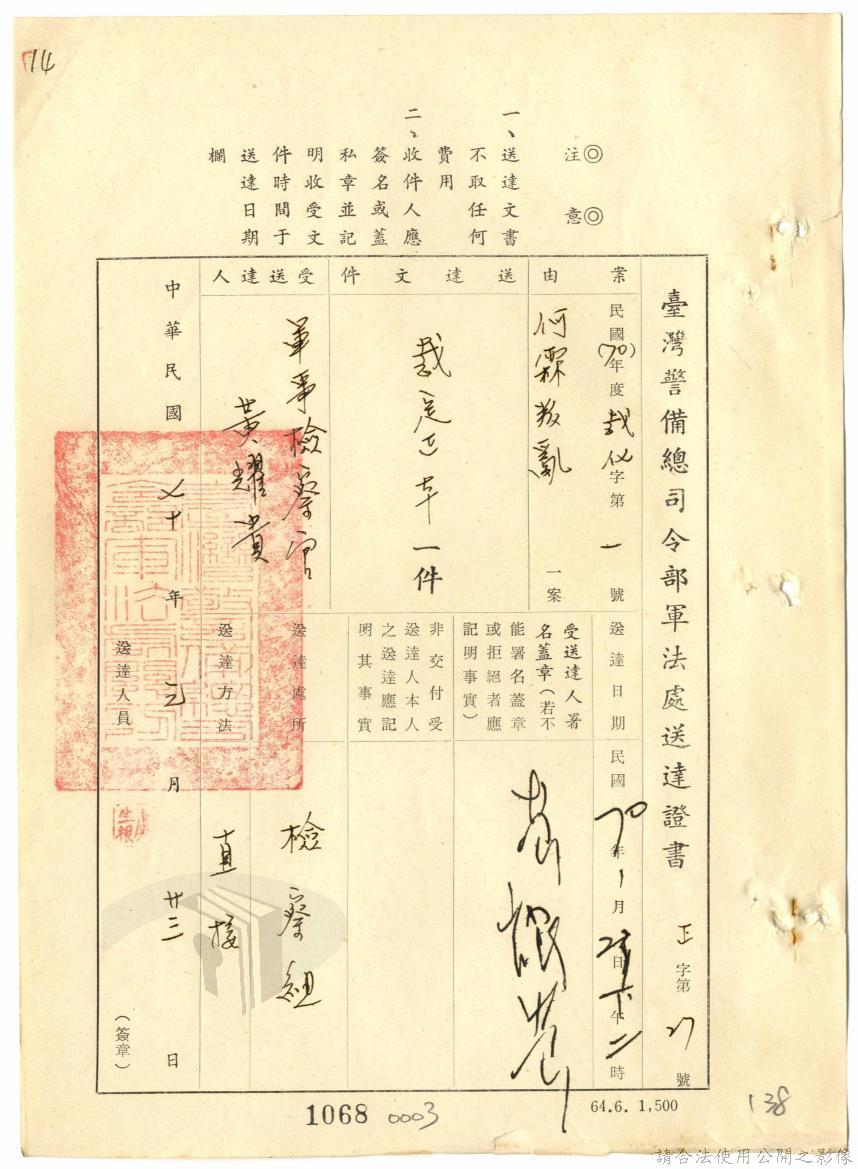 14
◎注意◎
一、送達文書
不取任何
費用
二、收件人應
簽名或蓋
私章並記
明收受文
件時間于
送達日期
欄
臺灣警備總司令部軍法處送達證書
正字第27號
案由
民國(70)年度裁仪字第一號
何霖叛亂一案
送達文件
裁定正本一件
受送達人
軍事檢察官
黃耀貴
送達日期
民國70年1月23日下午二時
受送達人署
名蓋章(若不
能署名蓋章
或拒絕者應
記明事實)
黃耀貴
非交付受
送達人本人
之送達應記
明其事實
送達處所
檢察組
送達方法
直接
中華民國七十年元月廿三日
送達人員
(簽章)
1068
0003
64.6. 1,500
138
請合法使用公開之影像